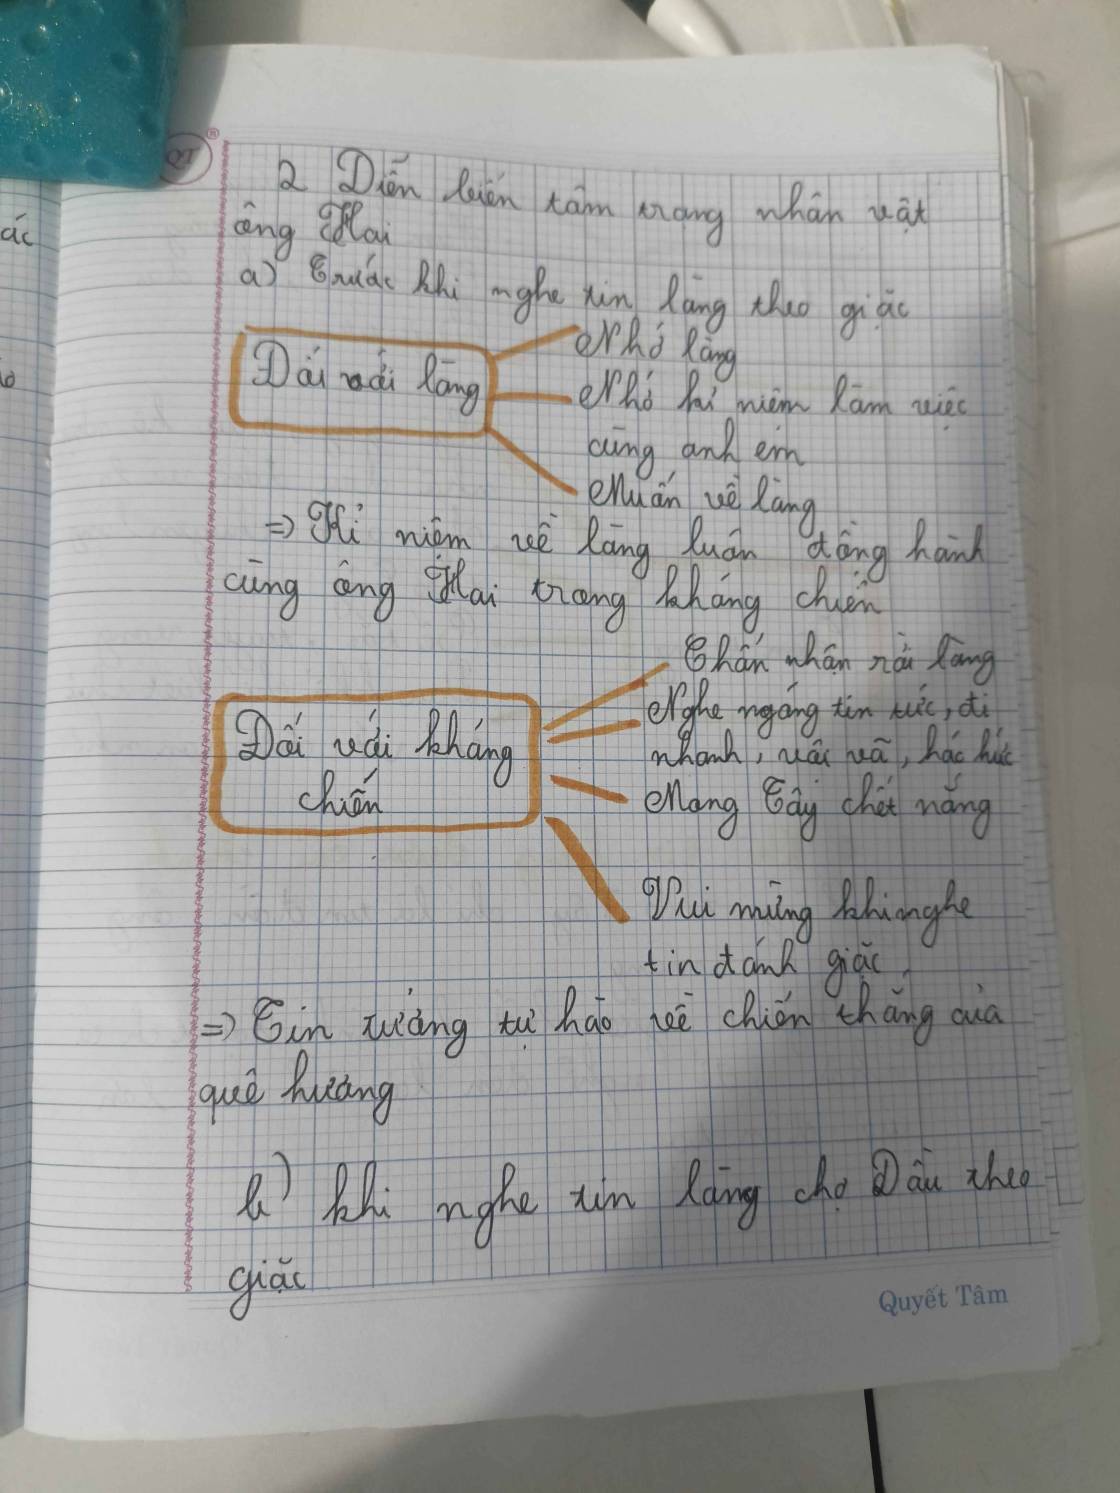 2 Diễn biến tâm trạng nhân vật
ông Hai
a) Trước khi nghe tin làng theo giặc
Đối với làng
Nhớ làng
Nhớ kỉ niệm làm việc
cùng anh em
Muốn về làng
=> Kỉ niệm về làng luôn đồng hành
cùng ông Hai trong kháng chiến
Đối với kháng
chiến
Chấn nhận rời làng
Nghe ngóng tin tức, đi
nhanh, vội vã, háo hức
Mong Tây chết nắng
Vui mừng khi nghe
tin đánh giặc
=> Tin tưởng tự hào về chiến thắng của
quê hương
b) khi nghe tin làng chợ Dầu theo
giặc
Quyết Tâm
ác